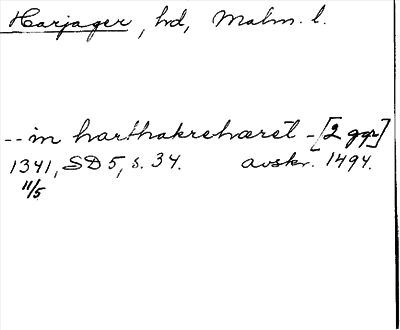 Harjager, hd, Malm. l.
-- in harthakrehæret - [2 ggr]
1341, SD 5, s. 34. avskr. 1494.
11/5